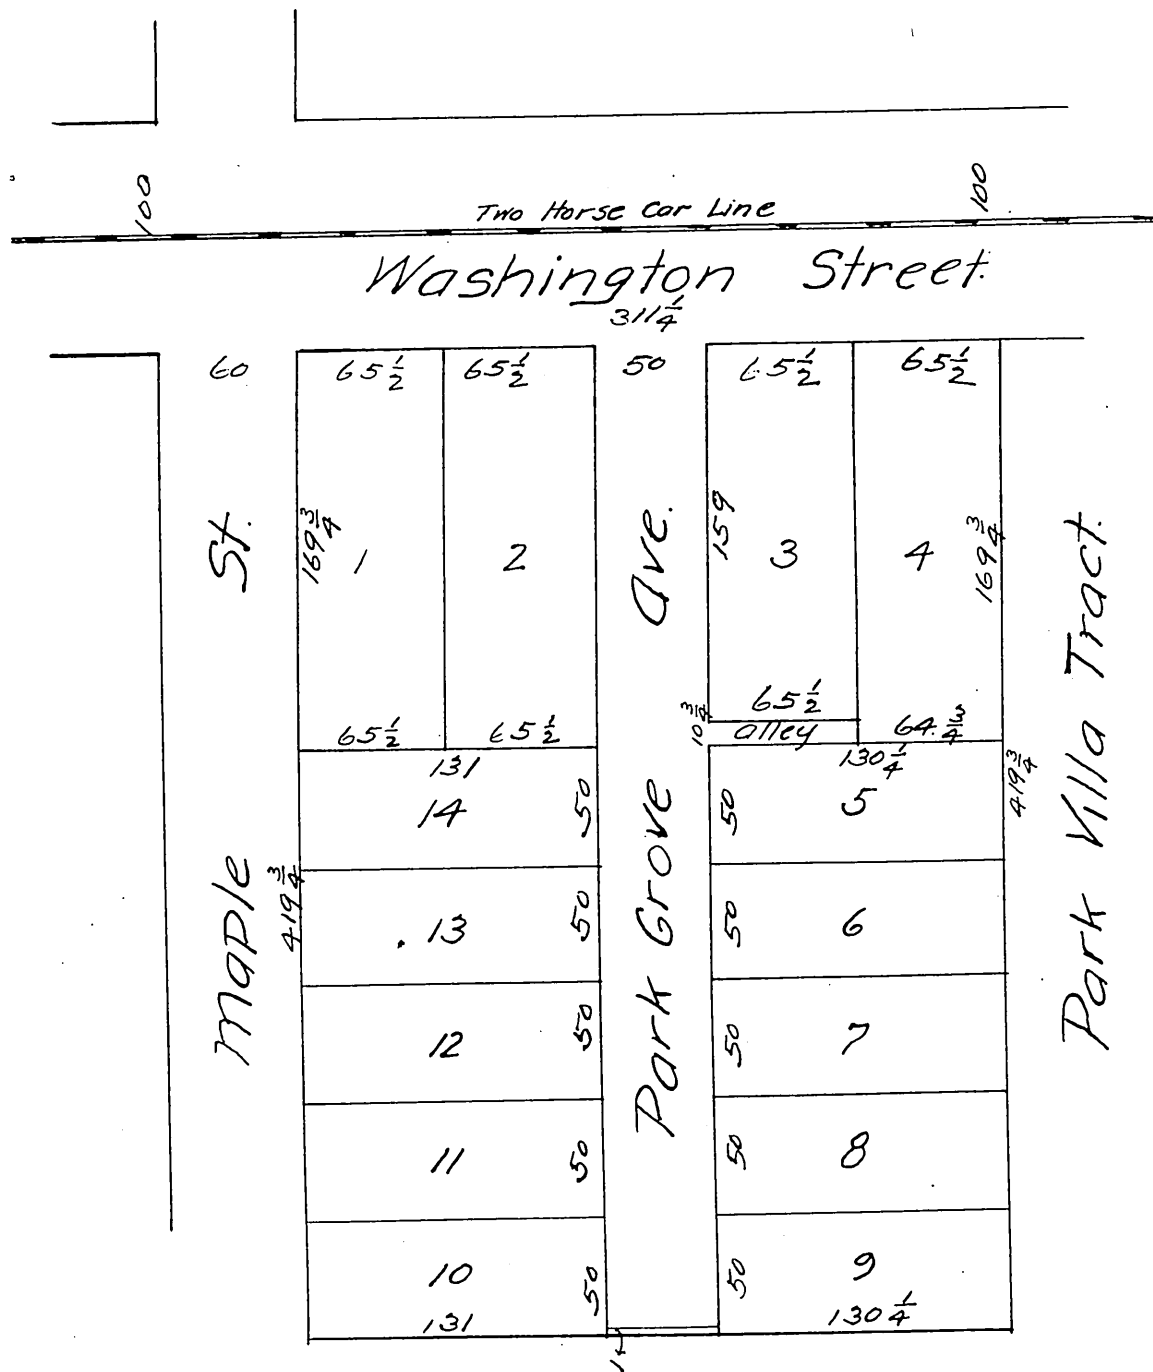 100
100
Two Horse Car Line
Washington Street.
311 1/4
60
65 1/2
65 1/2
50
65 1/2
65 1/2
Maple St.
169 3/4
1
2
Park Grove Ave.
159
3
4
169 3/4
Park Villa Tract.
65 1/2
65 1/2
65 1/2
10 3/4
alley
64 3/4
131
130 1/4
14
50
50
5
419 3/4
419 3/4
13
50
50
6
12
50
50
7
11
50
50
8
10
50
50
9
131
130 1/4
1